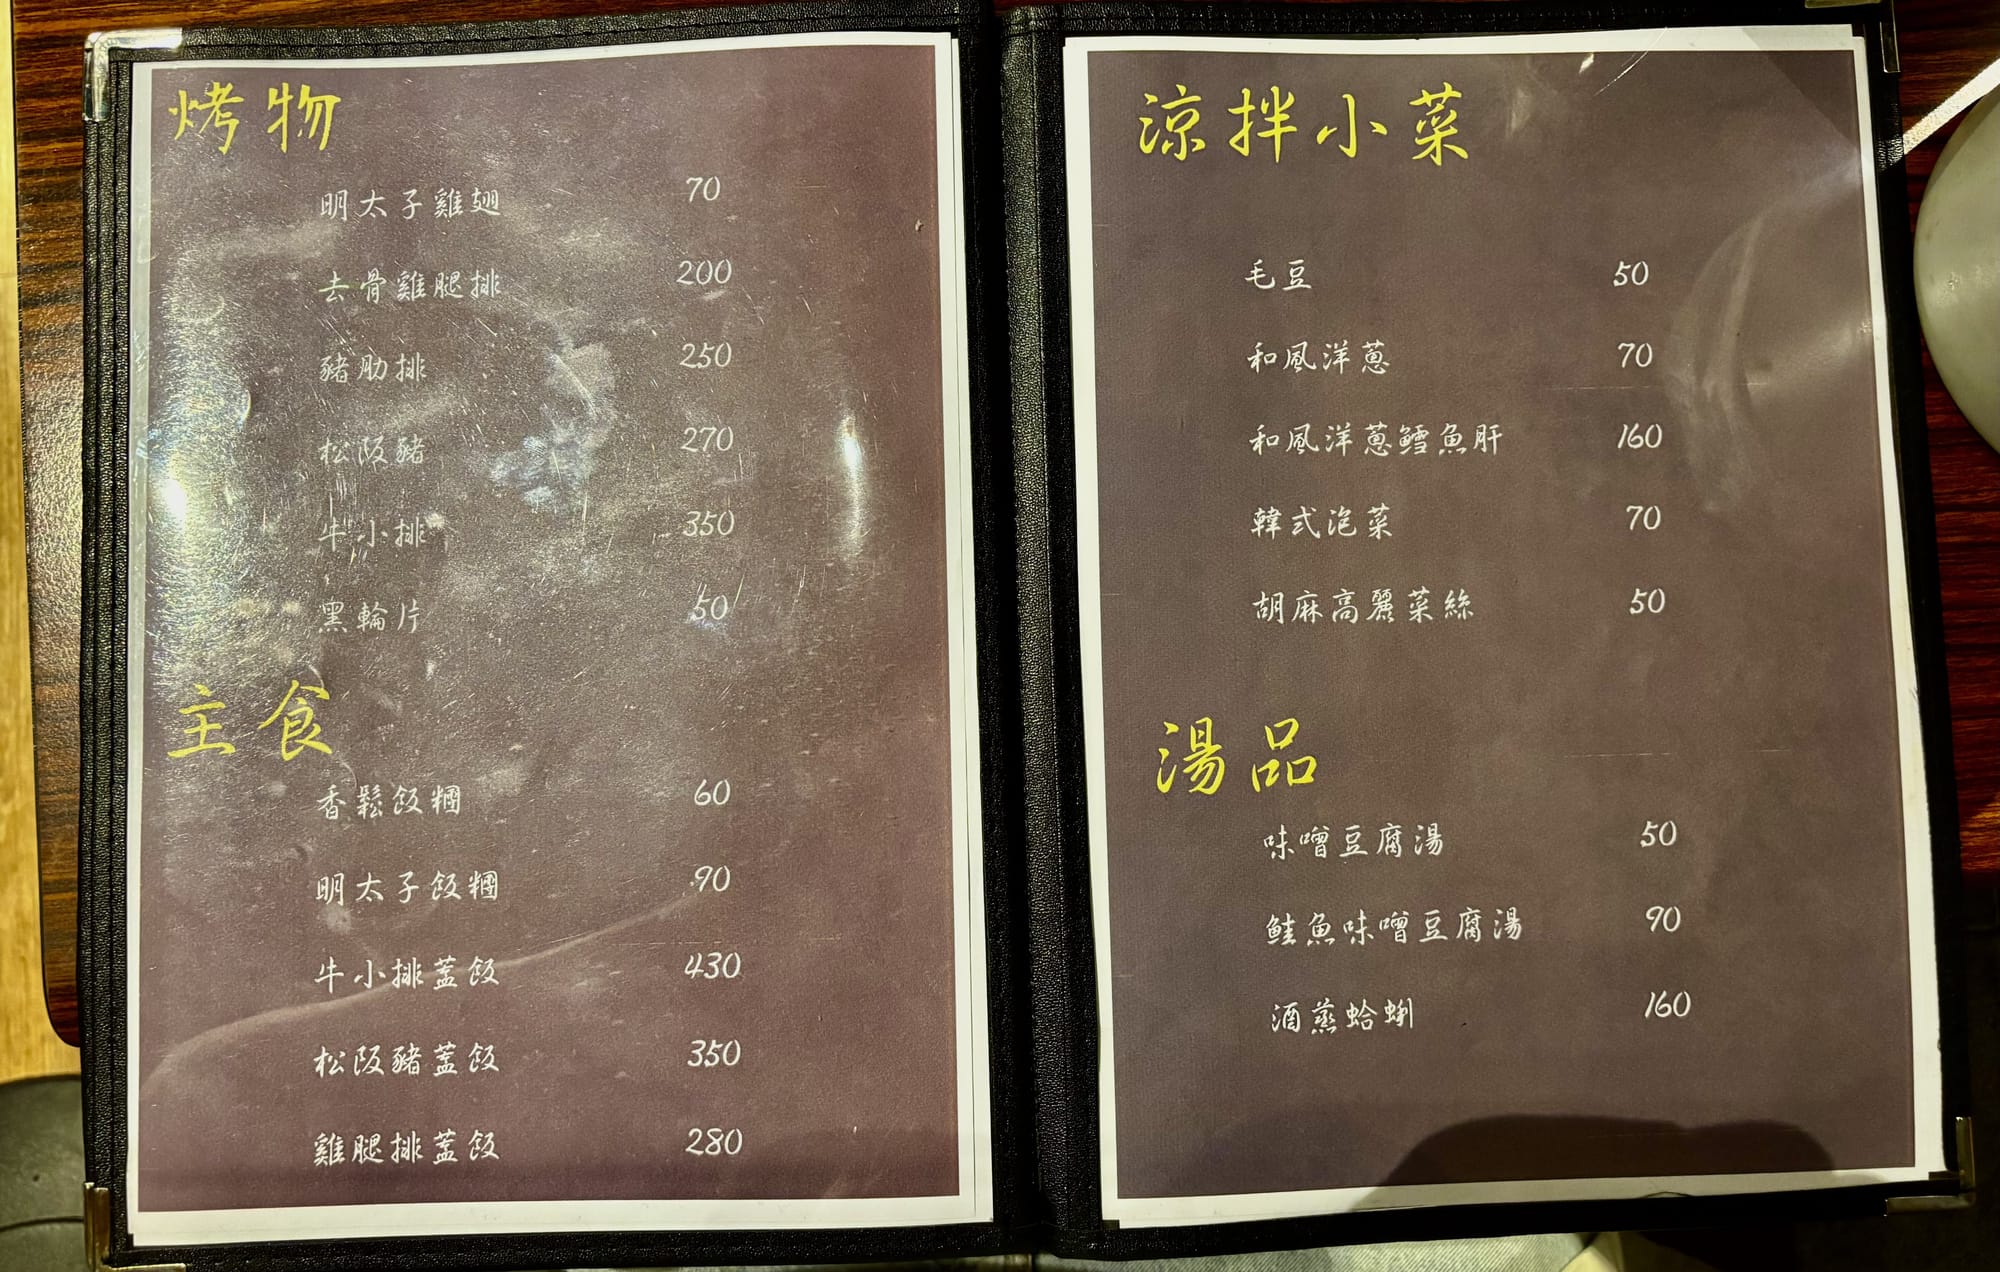 烤物
明太子雞翅 70
去骨雞腿排 200
豬肋排 250
松阪豬 270
牛小排 350
黑輪片 50
主食
香鬆飯糰 60
明太子飯糰 90
牛小排蓋飯 430
松阪豬蓋飯 350
雞腿排蓋飯 280
涼拌小菜
毛豆 50
和風洋蔥 70
和風洋蔥鱈魚肝 160
韓式泡菜 70
胡麻高麗菜絲 50
湯品
味噌豆腐湯 50
鮭魚味噌豆腐湯 90
酒蒸蛤蜊 160